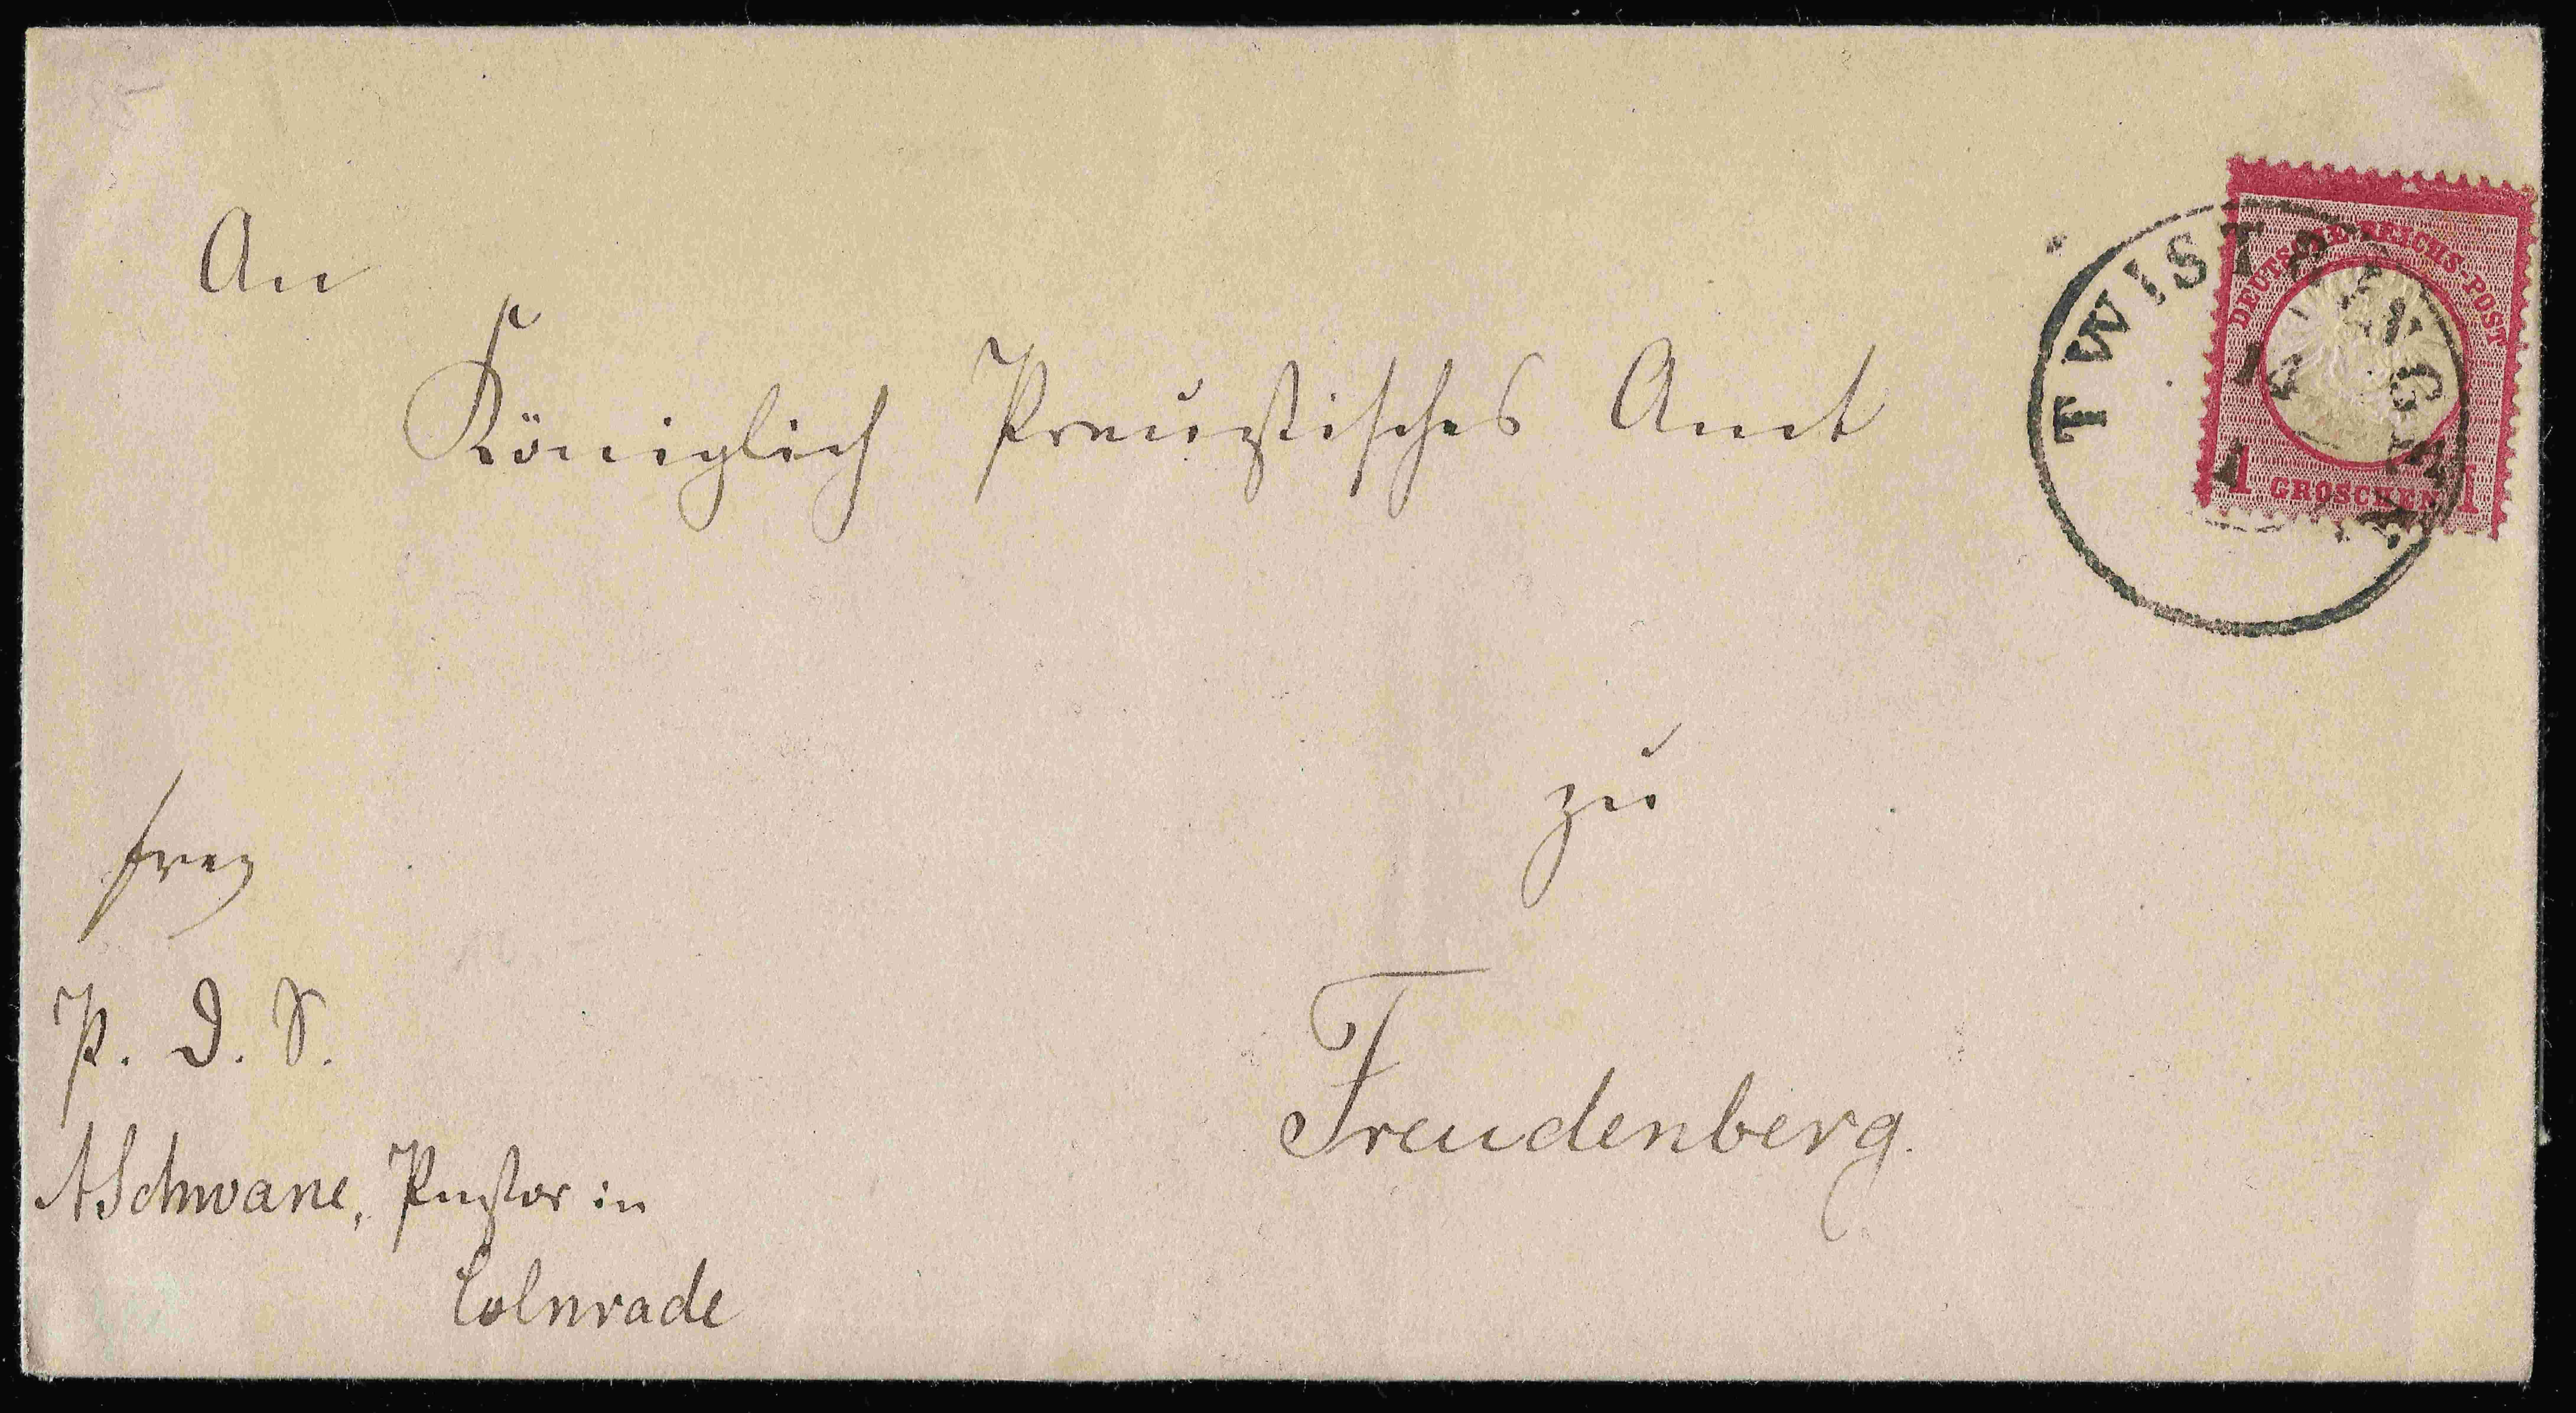 An
Königlich Preußisches Amt
zu
Freudenberg.
frey
P. D. S.
ASchwane, Pastor in
Colnrade
TWISTRINGEN
DEUTSCHE REICHS-POST
1 GROSCHEN 1